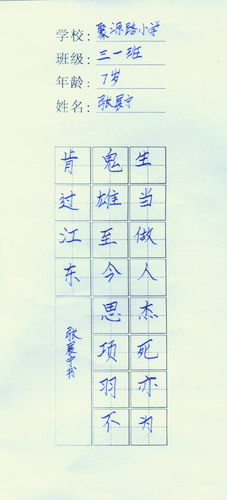 学校: 聚源路小学
班级: 三一班
年龄: 7岁
姓名: 张展宁
生当做人杰死亦为
鬼雄至今思项羽不
肯过江东
张展宁书